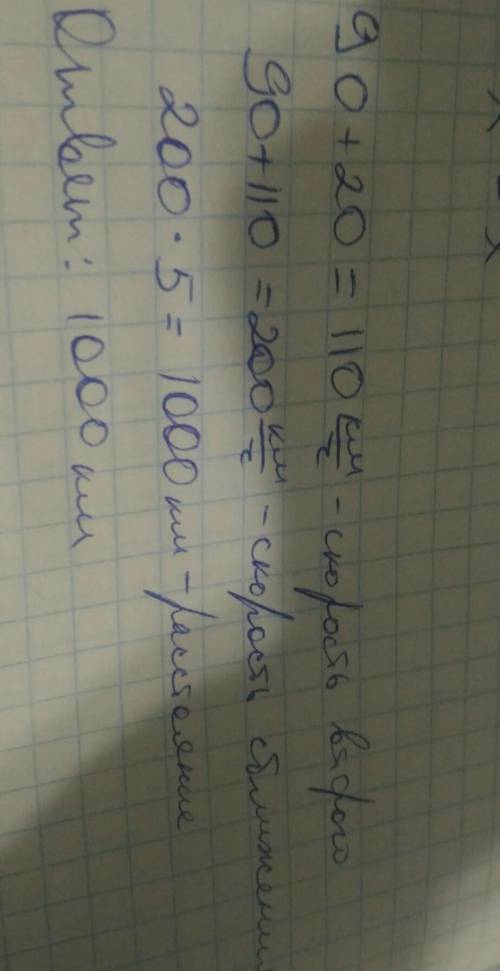 90 + 20 = 110 км/ч - скорость второго
90 + 110 = 200 км/ч - скорость сближения
200 · 5 = 1000 км - расстояние
Ответ: 1000 км